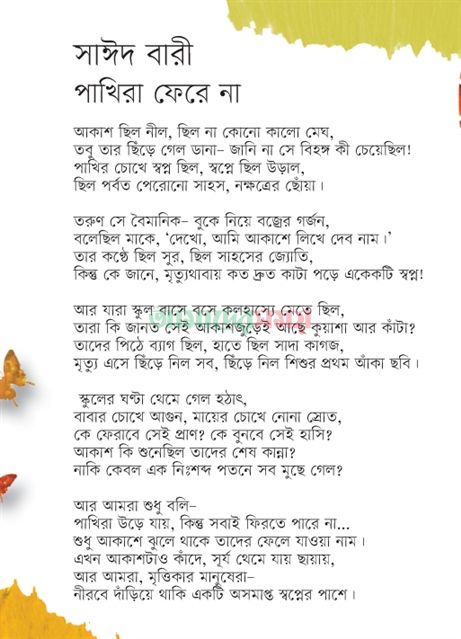 সাঈদ বারী
পাখিরা ফেরে না
আকাশ ছিল নীল, ছিল না কোনো কালো মেঘ,
তবু তার ছিঁড়ে গেল ডানা– জানি না সে বিহঙ্গ কী চেয়েছিল!
পাখির চোখে স্বপ্ন ছিল, স্বপ্নে ছিল উড়াল,
ছিল পর্বত পেরোনো সাহস, নক্ষত্রের ছোঁয়া।
তরুণ সে বৈমানিক– বুকে নিয়ে বজ্রের গর্জন,
বলেছিল মাকে, ‘দেখো, আমি আকাশে লিখে দেব নাম।’
তার কণ্ঠে ছিল সুর, ছিল সাহসের জ্যোতি,
কিন্তু কে জানে, মৃত্যুথাবায় কত দ্রুত কাটা পড়ে একেকটি স্বপ্ন!
আর যারা স্কুল বাসে বসে কলহাস্যে মেতে ছিল,
তারা কি জানত সেই আকাশজুড়েই আছে কুয়াশা আর কাঁটা?
তাদের পিঠে ব্যাগ ছিল, হাতে ছিল সাদা কাগজ,
মৃত্যু এসে ছিঁড়ে নিল সব, ছিঁড়ে নিল শিশুর প্রথম আঁকা ছবি।
স্কুলের ঘণ্টা থেমে গেল হঠাৎ,
বাবার চোখে আগুন, মায়ের চোখে নোনা স্রোত,
কে ফেরাবে সেই প্রাণ? কে বুনবে সেই হাসি?
আকাশ কি শুনেছিল তাদের শেষ কান্না?
নাকি কেবল এক নিঃশব্দ পতনে সব মুছে গেল?
আর আমরা শুধু বলি–
পাখিরা উড়ে যায়, কিন্তু সবাই ফিরতে পারে না...
শুধু আকাশে ঝুলে থাকে তাদের ফেলে যাওয়া নাম।
এখন আকাশটাও কাঁদে, সূর্য থেমে যায় ছায়ায়,
আর আমরা, মৃত্তিকার মানুষেরা–
নীরবে দাঁড়িয়ে থাকি একটি অসমাপ্ত স্বপ্নের পাশে।